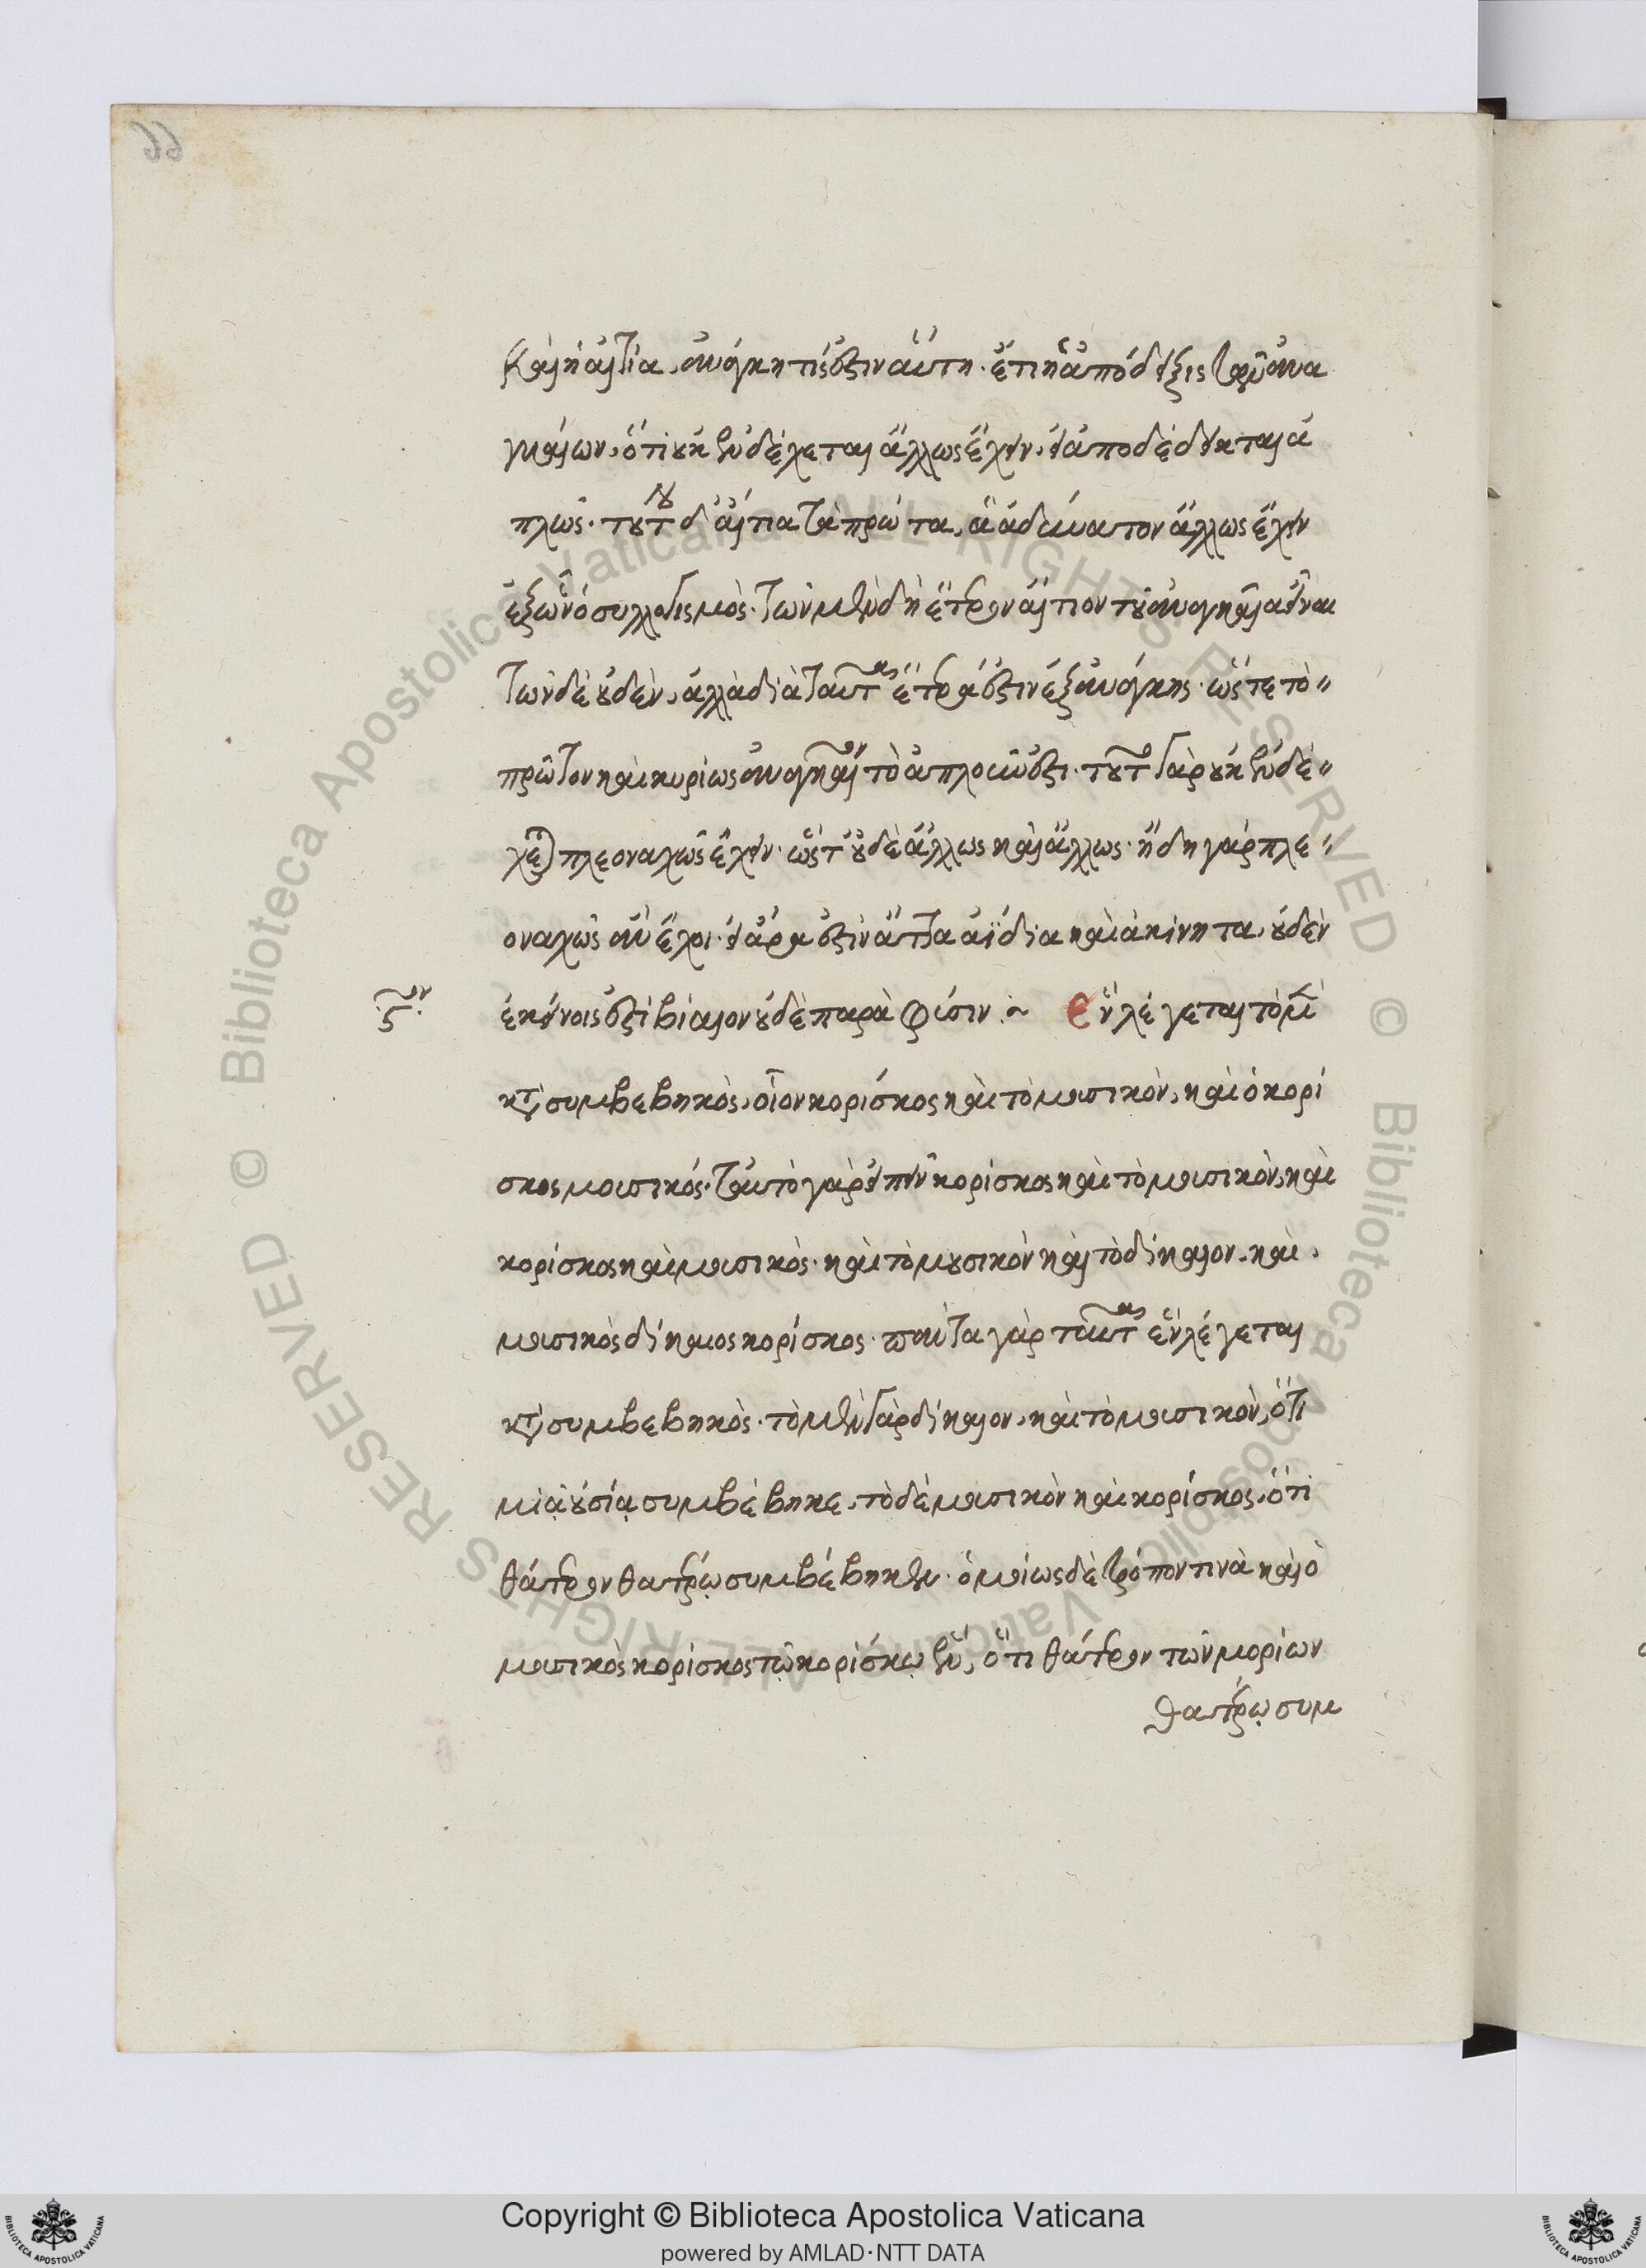 καὶ ἡ αἰτία, ἀνάγκη τίς ἐστιν αὕτη. ἔτι ἡ ἀπόδειξις τῶν ἀνα
γκαίων, ὅτι οὐκ ἐνδέχεται ἄλλως ἔχειν, εἰ ἀποδέδεικται ἁ
πλῶς. τούτου δ' αἴτια τὰ πρῶτα, ἃ ἀδύνατον ἄλλως ἔχειν
ἐξ ὧν ὁ συλλογισμός. τῶν μὲν δὴ ἕτερον αἴτιον τοῦ ἀναγκαῖα εἶναι
τῶν δὲ οὐδὲν, ἀλλὰ διὰ ταῦτα ἕτερά ἐστιν ἐξ ἀνάγκης. ὥστε τὸ
πρῶτον καὶ κυρίως ἀναγκαῖον τὸ ἁπλοῦν ἐστι. τοῦτο γὰρ οὐκ ἐνδέ
χεται πλεοναχῶς ἔχειν. ὥστ' οὐδὲ ἄλλως καὶ ἄλλως. ἤδη γὰρ πλε
οναχῶς ἂν ἔχοι. εἰ ἄρα ἐστὶν ἄττα ἀΐδια καὶ ἀκίνητα, οὐδὲν
ϛον
ἐκείνοις ἐστὶ βίαιον οὐδὲ παρὰ φύσιν :~ Ἓν λέγεται τὸ μὲν
κατὰ συμβεβηκὸς, οἷον κορίσκος καὶ τὸ μουσικὸν, καὶ ὁ κορί
σκος μουσικός. ταυτὸ γὰρ εἰπεῖν κορίσκος καὶ τὸ μουσικὸν, καὶ
κορίσκος καὶ μουσικὸς. καὶ τὸ μουσικὸν καὶ τὸ δίκαιον, καὶ
μουσικὸς δίκαιος κορίσκος. πάντα γὰρ ταῦτα ἓν λέγεται
κατὰ συμβεβηκὸς. τὸ μὲν γὰρ δίκαιον, καὶ τὸ μουσικὸν, ὅτι
μιᾷ οὐσίᾳ συμβέβηκε, τὸ δὲ μουσικὸν καὶ κορίσκος, ὅτι
θάτερον θατέρῳ συμβέβηκεν. ὁμοίως δὲ τρόπον τινὰ καὶ ὁ
μουσικὸς κορίσκος τῷ κορίσκῳ ἓν, ὅτι θάτερον τῶν μορίων
θατέρῳ συμ
66
Copyright © Biblioteca Apostolica Vaticana
powered by AMLAD·NTT DATA
Biblioteca Apostolica Vaticana ALL RIGHTS RESERVED ©
Biblioteca Apostolica Vaticana ALL RIGHTS RESERVED ©